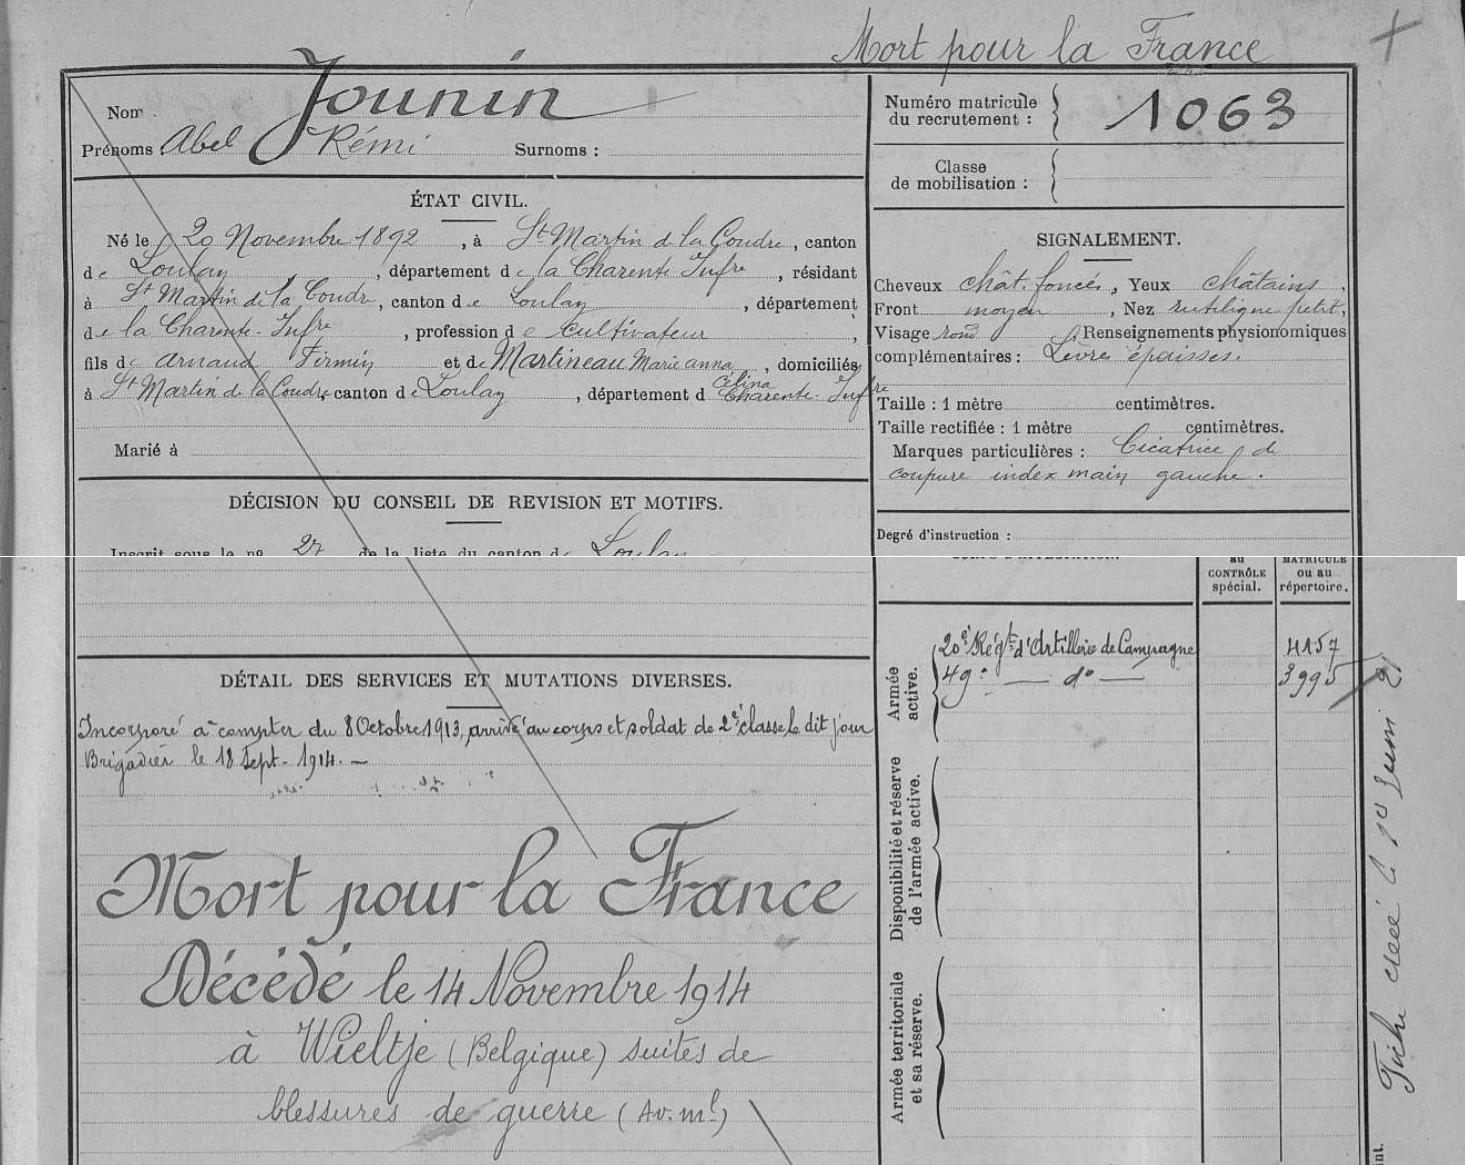 Mort pour la France
Nom Jounin
Prénoms Abel Rémi Surnoms :
Numéro matricule
du recrutement : 1063
Classe
de mobilisation :
ÉTAT CIVIL.
Né le 20 Novembre 1892, à St Martin de la Coudre, canton
de Loulay, département de la Charente Infre, résidant
à St Martin de la Coudre, canton de Loulay, département
de la Charente-Infre, profession de cultivateur,
fils de Arnaud Firmin et de Martineau Marie anna Célina, domiciliés
à St Martin de la Coudre, canton de Loulay, département d Charente-Infre
Marié à
SIGNALEMENT.
Cheveux chât. foncés, Yeux châtains,
Front moyen, Nez rectiligne petit,
Visage rond, Renseignements physionomiques
complémentaires : Lèvres épaisses.
Taille : 1 mètre centimètres.
Taille rectifiée : 1 mètre centimètres.
Marques particulières : Cicatrice de
coupure index main gauche.
DÉCISION DU CONSEIL DE REVISION ET MOTIFS.
Inscrit sous le no 27 de la liste du canton de Loulay
Degré d'instruction :
au
CONTRÔLE
spécial.
MATRICULE
ou au
répertoire.
DÉTAIL DES SERVICES ET MUTATIONS DIVERSES.
Incorporé à compter du 8 Octobre 1913, arrivé au corps et soldat de 2e classe le dit jour
Brigadier le 18 Sept. 1914. —
Mort pour la France
Décédé le 14 Novembre 1914
à Wieltje (Belgique) suites de
blessures de guerre (Av. ml)
Armée
active.
20e Régt d'Artillerie de Campagne 4157
49e — do — 3995
Disponibilité et réserve
de l'armée active.
Armée territoriale
et sa réserve.
Fiche créé le 1er Juin 2